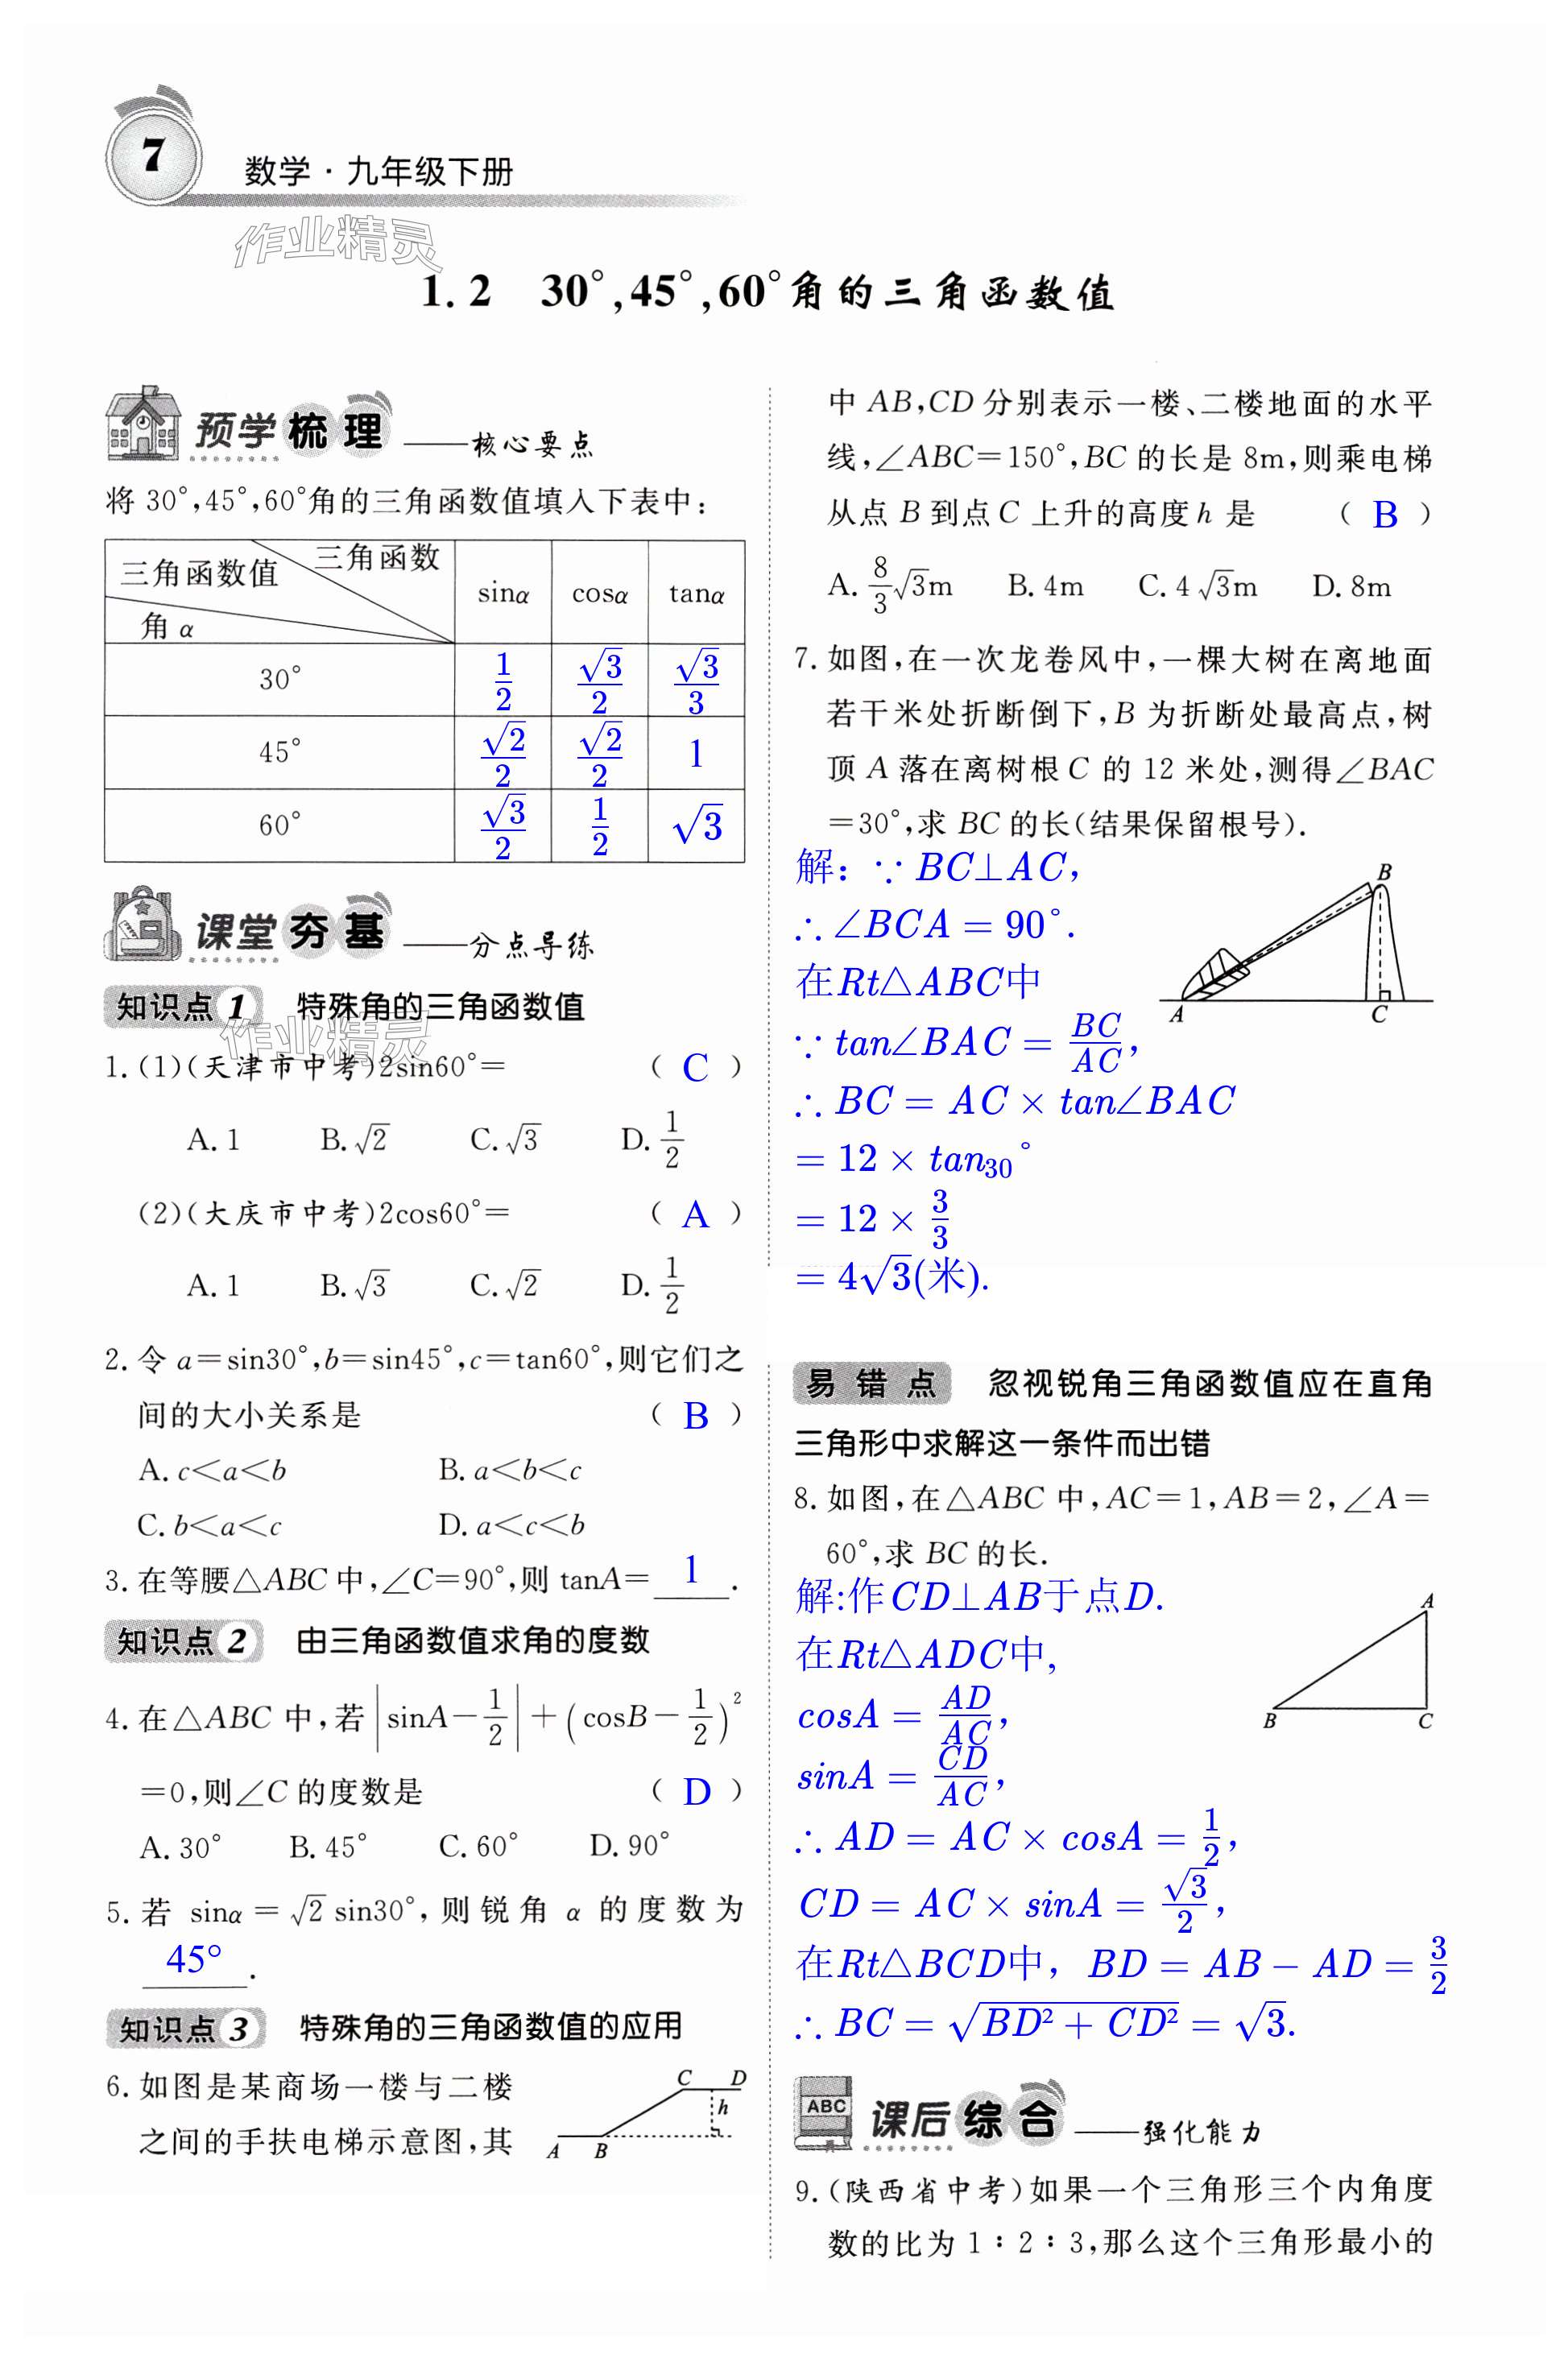 7
数学·九年级下册
作业精灵
1.2 30°,45°,60°角的三角函数值
预学梳理——核心要点
将 30°,45°,60°角的三角函数值填入下表中:
三角函数值 三角函数 角 α sinα cosα tanα
30° 1/2 √3/2 √3/3
45° √2/2 √2/2 1
60° √3/2 1/2 √3
课堂夯基——分点导练
知识点1 特殊角的三角函数值
作业精灵
1.(1)(天津市中考)2sin60°= ( C )
A.1 B.√2 C.√3 D.1/2
(2)(大庆市中考)2cos60°= ( A )
A.1 B.√3 C.√2 D.1/2
2.令 a=sin30°,b=sin45°,c=tan60°,则它们之
间的大小关系是 ( B )
A.c<a<b B.a<b<c
C.b<a<c D.a<c<b
3.在等腰△ABC 中,∠C=90°,则 tanA= 1 .
知识点2 由三角函数值求角的度数
4.在△ABC 中,若|sinA-1/2|+(cosB-1/2)²
=0,则∠C 的度数是 ( D )
A.30° B.45° C.60° D.90°
5.若 sinα=√2 sin30°,则锐角 α 的度数为
45° .
知识点3 特殊角的三角函数值的应用
6.如图是某商场一楼与二楼
之间的手扶电梯示意图,其
C D
h
A B
中 AB,CD 分别表示一楼、二楼地面的水平
线,∠ABC=150°,BC 的长是 8m,则乘电梯
从点 B 到点 C 上升的高度 h 是 ( B )
A.8/3√3m B.4m C.4√3m D.8m
7.如图,在一次龙卷风中,一棵大树在离地面
若干米处折断倒下,B 为折断处最高点,树
顶 A 落在离树根 C 的 12 米处,测得∠BAC
=30°,求 BC 的长(结果保留根号).
解：∵ BC⊥AC，
∴ ∠BCA = 90°.
在Rt△ABC中
∵ tan∠BAC = BC/AC，
∴ BC = AC × tan∠BAC
= 12 × tan₃₀°
= 12 × 3/3
= 4√3(米).
B
A C
易错点 忽视锐角三角函数值应在直角
三角形中求解这一条件而出错
8.如图,在△ABC 中,AC=1,AB=2,∠A=
60°,求 BC 的长.
解:作CD⊥AB于点D.
在Rt△ADC中,
cosA = AD/AC，
sinA = CD/AC，
∴ AD = AC × cosA = 1/2，
CD = AC × sinA = √3/2，
在Rt△BCD中，BD = AB − AD = 3/2
∴ BC = √(BD² + CD²) = √3.
A
B C
ABC
课后综合——强化能力
9.(陕西省中考)如果一个三角形三个内角度
数的比为 1∶2∶3,那么这个三角形最小的